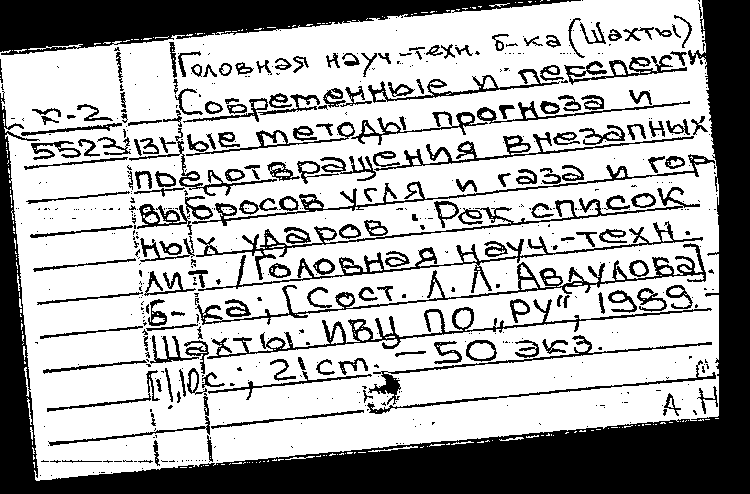 Головная науч.-техн. б-ка (Шахты)
Современные и перспекти
Х-2
5523
вные методы прогноза и
предотвращения внезапных
выбросов угля и газа и гор
ных ударов : Рек. список
лит. / Головная науч.-техн.
б-ка ; [Сост. Л. Л. Авдулова].
Шахты : ИВЦ ПО „РУ“, 1989. -
[1], 10 с. ; 21 ст. — 50 экз.
А.Н